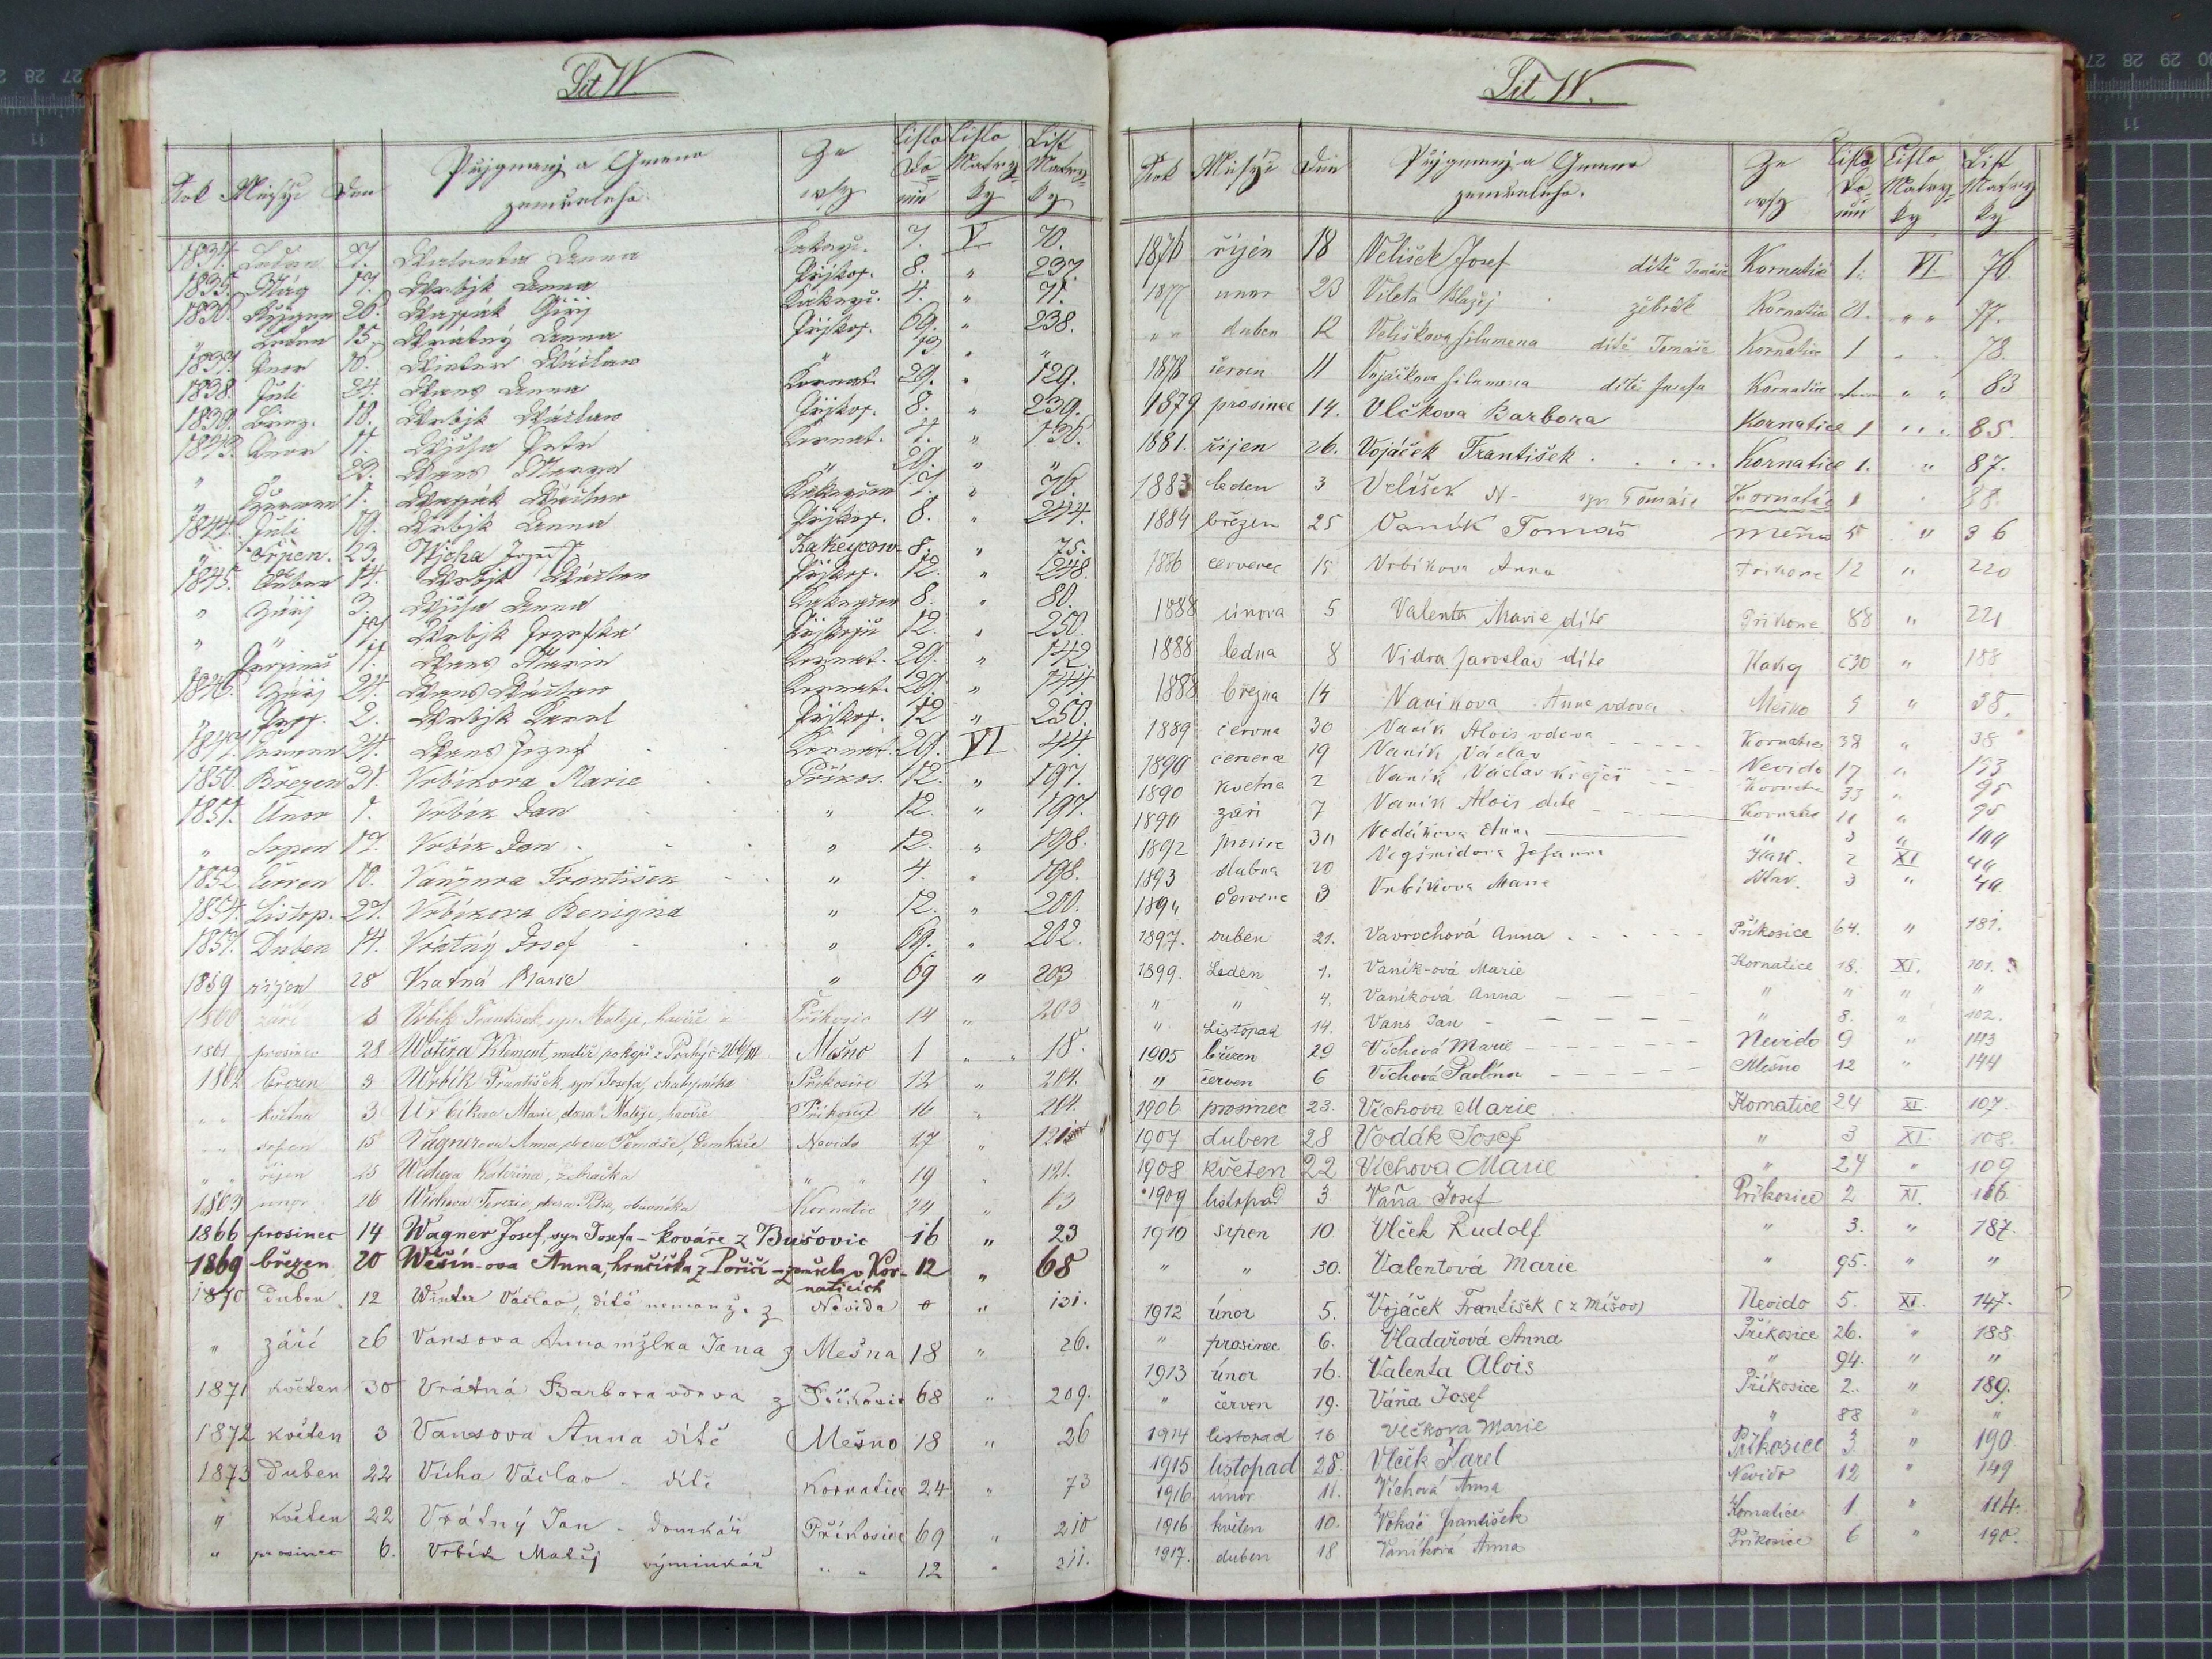 Lit W.
Rok Měsýc Den Přígmenj a Gmeno zemřelého Ze wsy Čislo Domu Čislo Matryky List Matryky
1834. Anna 7. V 70.
1835. 17. Wrbjk Anna Přjkos. 8. " 237.
1836. 26. Giřj 4. " 71.
" 15. Wrátný Anna Přjkos. 69. " 238.
1837. Unor 10. Winter Wáclaw " 73 " "
1838. Juli 24. Wans Anna Kornat. 29. " 129.
1839. Březn. 10. Wrbjk Wáclaw Přjkos. 8. " 239.
1843. Unor 11. Wjcha Petr Kornat. 7. " 136.
" 22. Wans " 29. " "
" Červen 1. Wáclaw 7. " 76.
1844. Juli 19. Wrbjk Anna Přjkos. 8. " 244.
" Srpen. 23. Wjcha Jozef Kakeycow 8. " 75.
1845. Duben 14. Wrbjk Wáclaw Přjkos. 12. " 248.
" Zářj 3. Wjcha Anna 8. " 80.
" " 17. Wrbjk Jozefka Přjkosyc 12. " 250.
" Prosinec 11. Wans Marie Kornat. 29. " 142
1846. Zářj 21. Wans Wáclaw Kornat. 29. " 144.
" Pros. 2. Wrbjk Karel Přjkos. 12 " 250.
1847. Červen 21. Wans Jozef Kornat. 29. VI 44.
1850. Březen 31. Vrbíkova Marie Příkos. 12. " 197.
1851. Unor 1. Vrbík Jan " 12. " 197.
" Srpen 17. Vrbík Jan " 12. " 198.
1852. Červen 10. Vančura František " 4. " 198.
1854. Listop. 27. Vrbíkova Benigna " 12. " 200.
1857. Duben 14. Vrátný Josef " 69. " 202.
1859 říjen 28 Vratná Marie " 69 " 203
1860 září 3 Vrbík František, syn Matěje, havíře Příkosic 14 " 203
1861 prosinec 28 Wotřza Klement, Mešno 1 " " 18.
1862 březen 3 Wrbík František, syn Josefa, chalupníka Příkosice 12 " 204.
" " května 3 Urbíkova Marie, dcera Matěje, havíře Příkosic 16 " 204.
" " srpen 15 Wágnerova Anna, dcera Tomáše, domkáře Nevido 17 "
" " říjen 25 Wíchova Kateřina, žebračka " " 19 " 121.
1863 unor 26 Wíchova Terezie, dcera Petra, obuvníka Kornatic 24 " 63
1866 prosinec 14 Wagner Josef, syn Josefa – kováře z Bušovic 16 " 23
1869 březen 20 Wešín-ova Anna, hrnčířka z Poříčí – zemřela v Kornaticích 12 " 68
1870 Duben 12 Winter Václav, dítě nemanž. z Nevida 0 " 131.
" záři 26 Vansova Anna mžlka Jana z Mešna 18 " 26.
1871 květen 30 Vrátná Barbora vdova z Příkosic 68 " 209.
1872 květen 3 Vansova Anna dítě Mešno 18 " 26
1873 Duben 22 Vícha Václav - dítě Kornatice 24 " 73
" květen 22 Vrátný Jan - domkář Příkosice 69 " 210
" prosinec 6. Vrbík Matěj výminkář " " 12 " 211.
Lit W.
Rok Měsýc Den Přígmenj a Gmeno zemřelého. Ze wsy Čislo Domu Čislo Matryky List Matryky
1876 říjen 18 Velišek Josef dítě Tomáše Kornatice 1. VI 76.
1877 unor 23 Vileta Blažej žebrák Kornatice 21. " " 77.
" " duben 12 Veliškova Filumena dítě Tomáše Kornatice 1 " " 78.
1878 červen 11 Vojáčkova Filumena dítě Josefa Kornatice " " 83
1879 prosinec 14. Vlčkova Barbora Kornatice 1 " " 85.
1881. říjen 26. Vojáček František Kornatice 1. " 87.
1883 leden 3 Velíšek N - syn Tomáše Kornatic 1 " 88.
1884 březen 25 Vaník Tomaš mešno 5 " 36
1886 červenec 15 Vrbíkova Anna Příkosice 12 " 220
1888 února 5 Valenta Marie dítě Příkosice 88 " 221
1888 ledna 8 Vidra Jaroslav dítě č30 " 188
1888 března 14 Vaníkova Anna vdova Mešno 5 " 38.
1889 června 30 Vaník Alois vdova Kornatice 38 " 38
1890 července 19 Vaník Václav Nevido 17 " 193
1890 května 2 Vaník Václav krejčí Kornatice 33 " 95
1890 září 7 Vaník Alois dítě Kornatice 11 " 95
1892 prosince 30 Vodákova Anna " 3 " 100
1893 dubna 20 Johanna 2 XI 40
1894 července 3 Vrbíkova Marie 3 " 40
1897. duben 21. Vavrochová Anna Příkosice 64. " 181.
1899. Leden 1. Vaník-ová Marie Kornatice 18. XI. 101.
" " 4. Vaníková Anna " " " "
" Listopad 14. Vans Jan " 8. " 102.
1905 březen 29 Víchová Marie Nevido 9 " 143
" červen 6 Víchová Pavlína Mešno 12 " 144
1906 prosinec 23. Víchova Marie Kornatice 24 XI. 107.
1907 duben 28 Vodák Josef " 3 XI. 108.
1908 květen 22 Víchova Marie " 24 " 109
1909 listopad 3. Váňa Josef Příkosice 2 XI. 186.
1910 srpen 10. Vlček Rudolf " 3. " 187.
" " 30. Valentová Marie " 95. " "
1912 únor 5. Vojáček František (z Míšov) Nevido 5. XI. 147.
" prosinec 6. Vladařová Anna Příkosice 26. " 188.
1913 únor 16. Valenta Alois " 94. " "
" červen 19. Váňa Josef Příkosice 2. " 189.
1914 listopad 16 Vlčkova Marie " 88 " "
1915. listopad 28. Vlček Karel Příkosice 3. " 190.
1916. únor 11. Víchová Anna Nevido 12 " 149
1916 květen 10. Vokáč František Kornatice 1 " 114.
1917. duben 18 Vaníková Anna Příkosice 6 " 190.